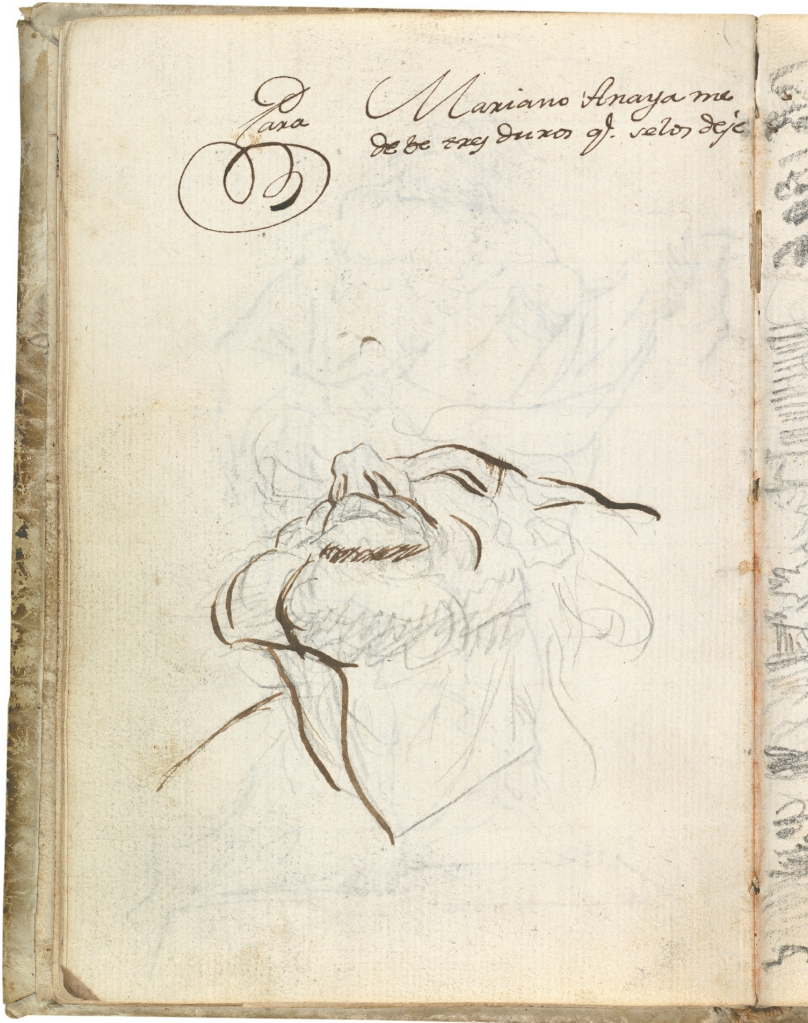 Para
Mariano Anaya me
debe tres duros q.e selos dejé